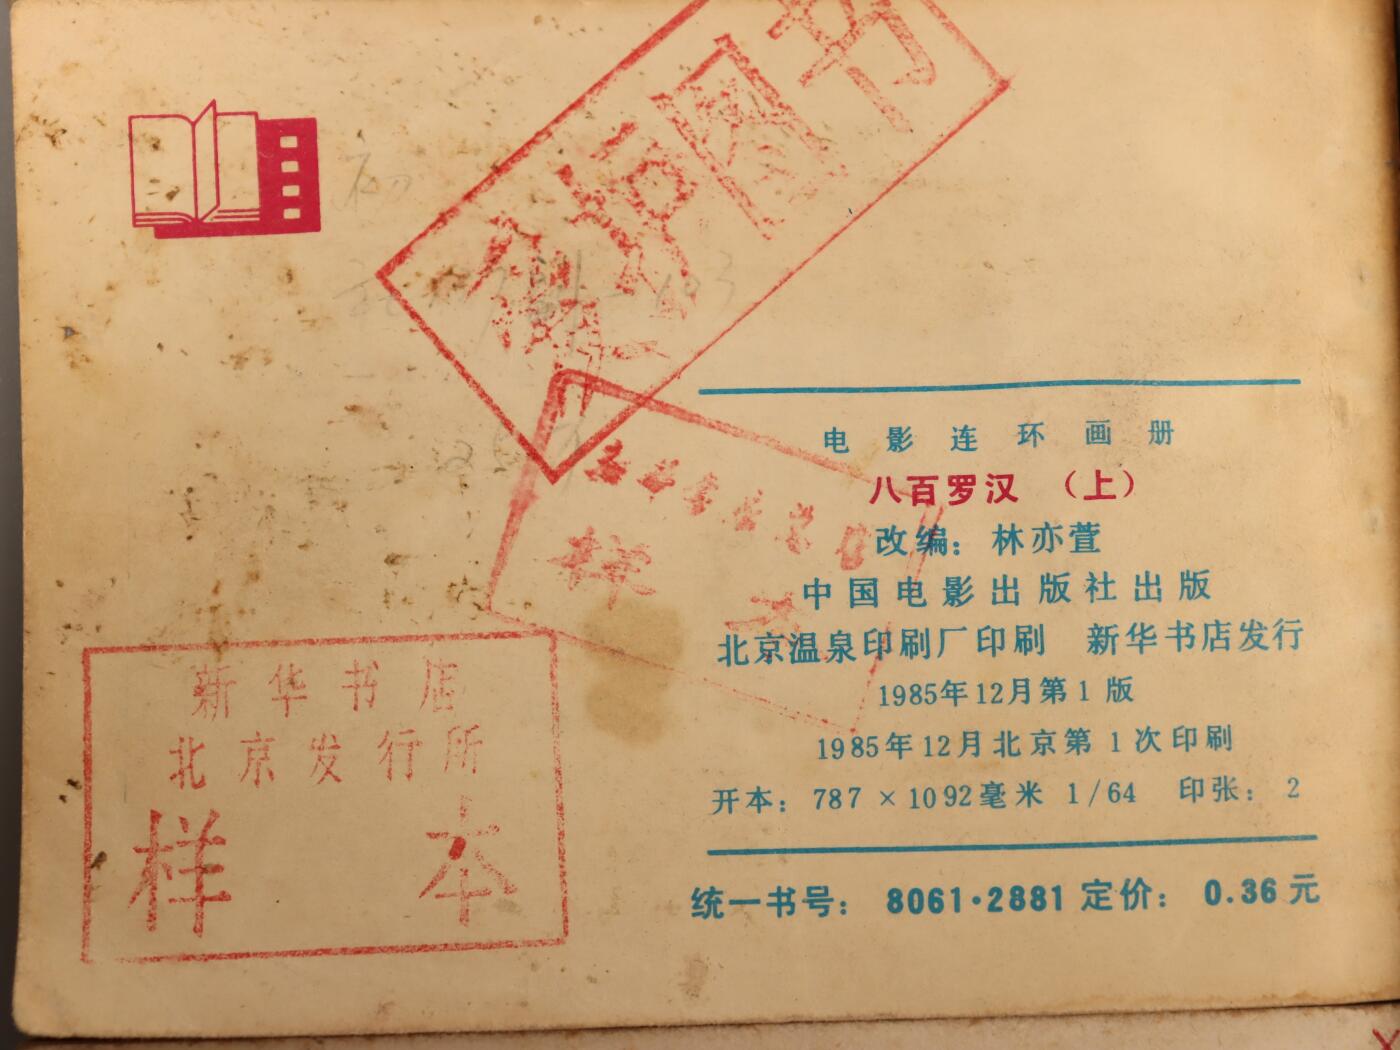 图书
电影连环画册
八百罗汉 （上）
改编：林亦萱
中国电影出版社出版
北京温泉印刷厂印刷 新华书店发行
1985年12月第1版
1985年12月北京第1次印刷
开本：787×1092毫米 1/64 印张：2
统一书号：8061·2881 定价：0.36元
新华书店
北京发行所
样本
样